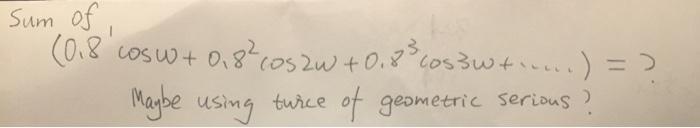 Sum of
(0.8¹cosw + 0.8²cos2w + 0.8³cos3w + ......) = ?
Maybe using twice of geometric serious ?